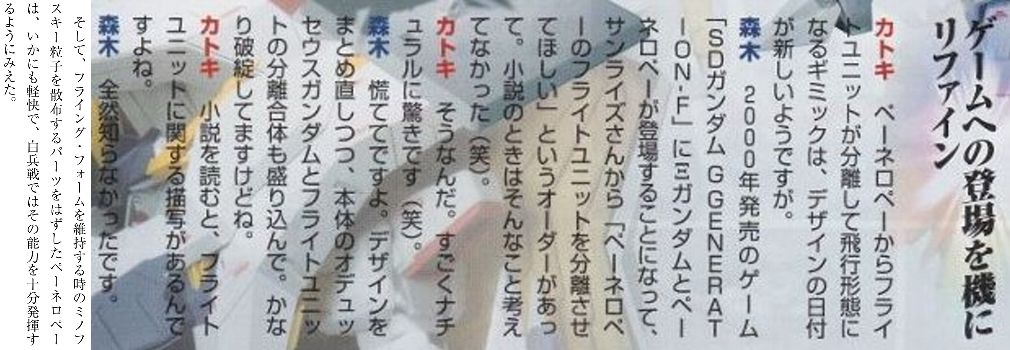 ゲームへの登場を機に
リファイン
カトキ　ペーネロペーからフライ
トユニットが分離して飛行形態に
なるギミックは、デザインの日付
が新しいようですが。
森木　2000年発売のゲーム
「SDガンダム GGENERAT
ION-F」にΞガンダムとペー
ネロペーが登場することになって、
サンライズさんから「ペーネロペ
ーのフライトユニットを分離させ
てほしい」というオーダーがあっ
て。小説のときはそんなこと考え
てなかった（笑）。
カトキ　そうなんだ。すごくナチ
ュラルに驚きです（笑）。
森木　慌ててですよ。デザインを
まとめ直しつつ、本体のオデュッ
セウスガンダムとフライトユニッ
トの分離合体も盛り込んで。かな
り破綻してますけどね。
カトキ　小説を読むと、フライト
ユニットに関する描写があるんで
すよね。
森木　全然知らなかったです。
そして、フライング・フォームを維持する時のミノフ
スキー粒子を散布するパーツをはずしたペーネロペー
は、いかにも軽快で、白兵戦ではその能力を十分発揮す
るようにみえた。